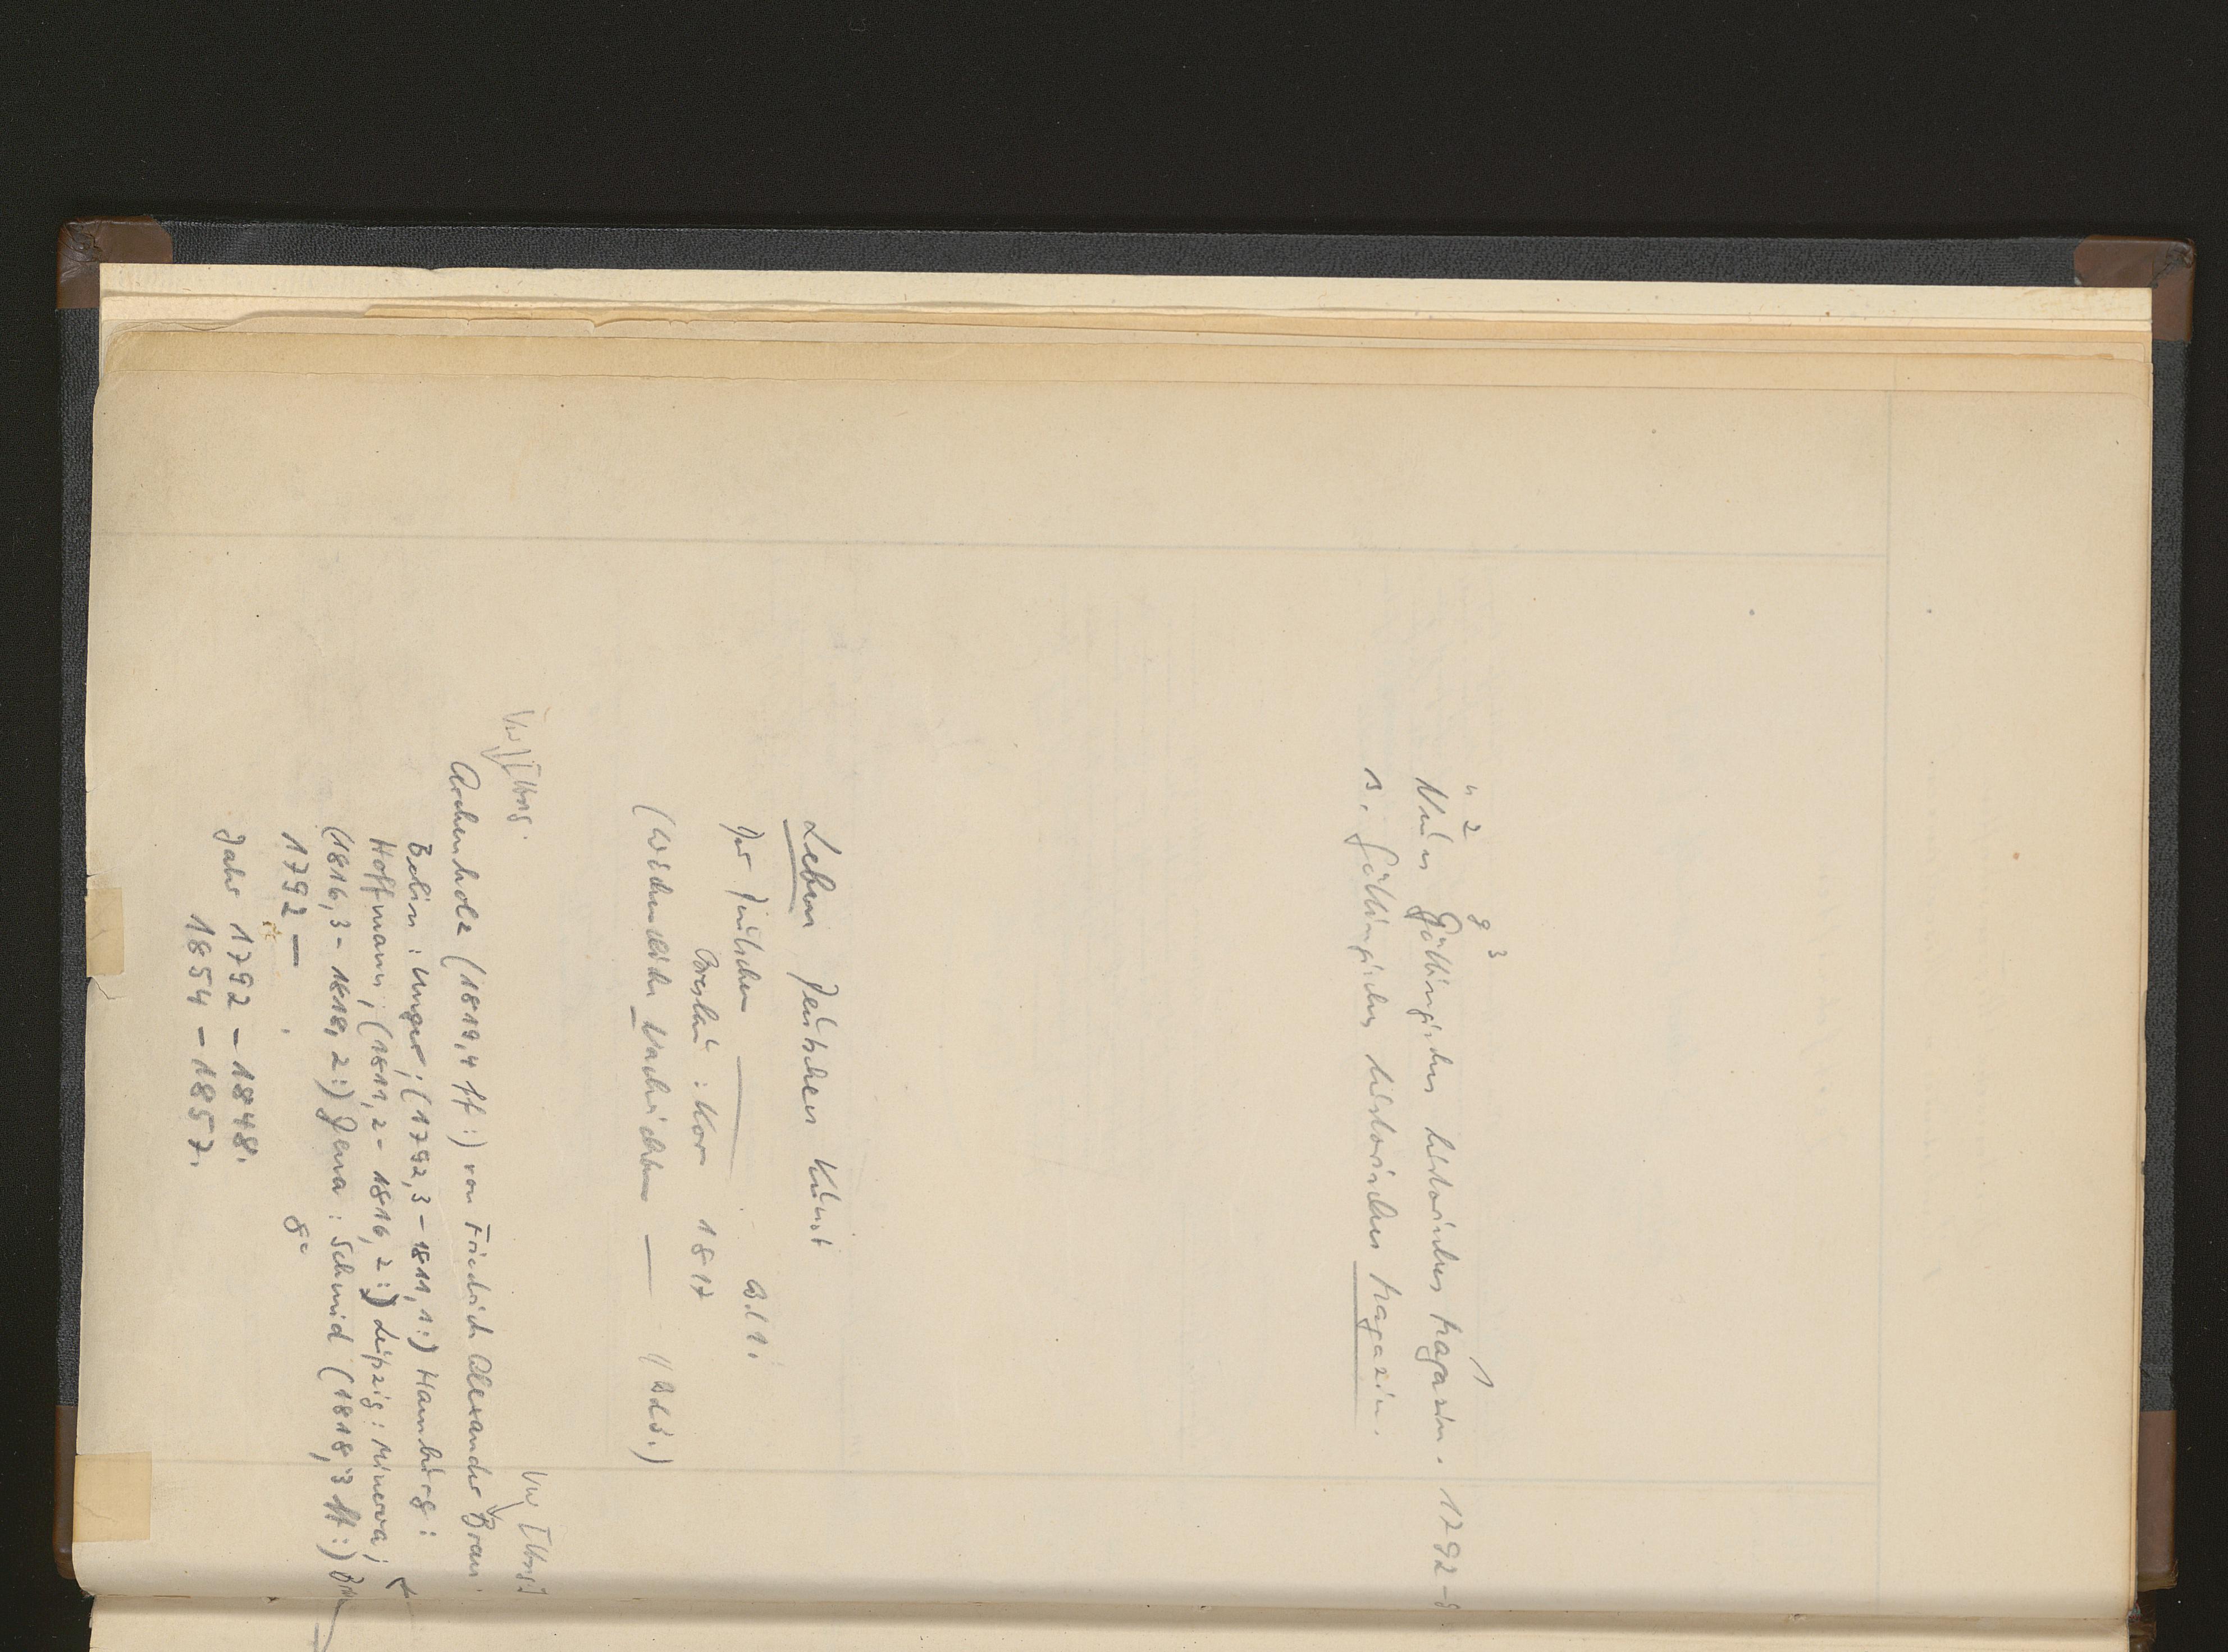 4 2 g 3 1
Neues Göttingisches historisches Magazin. 1792-
s. Göttingisches historisches Magazin.
Leben Deutscher Kunst
der Deutschen —
Bd 1.
Breslau: Korn 1817
(Wöchentliche Nachrichten — Bd 3.)
[Hrsg.
[Hrsg.]
Archenholz (1819,4 ff:) von Friedrich Alexander Bran.
Berlin: Unger; (1792,3-1811,1:) Hamburg:
Hoffmann; (1811,2-1816,2:) Leipzig: Minerva;
(1816,3-1818,2:) Jena: Schmid (1818,3 ff:) Bran
1792 — . 8°
Jahr 1792-1848.
1854-1857.